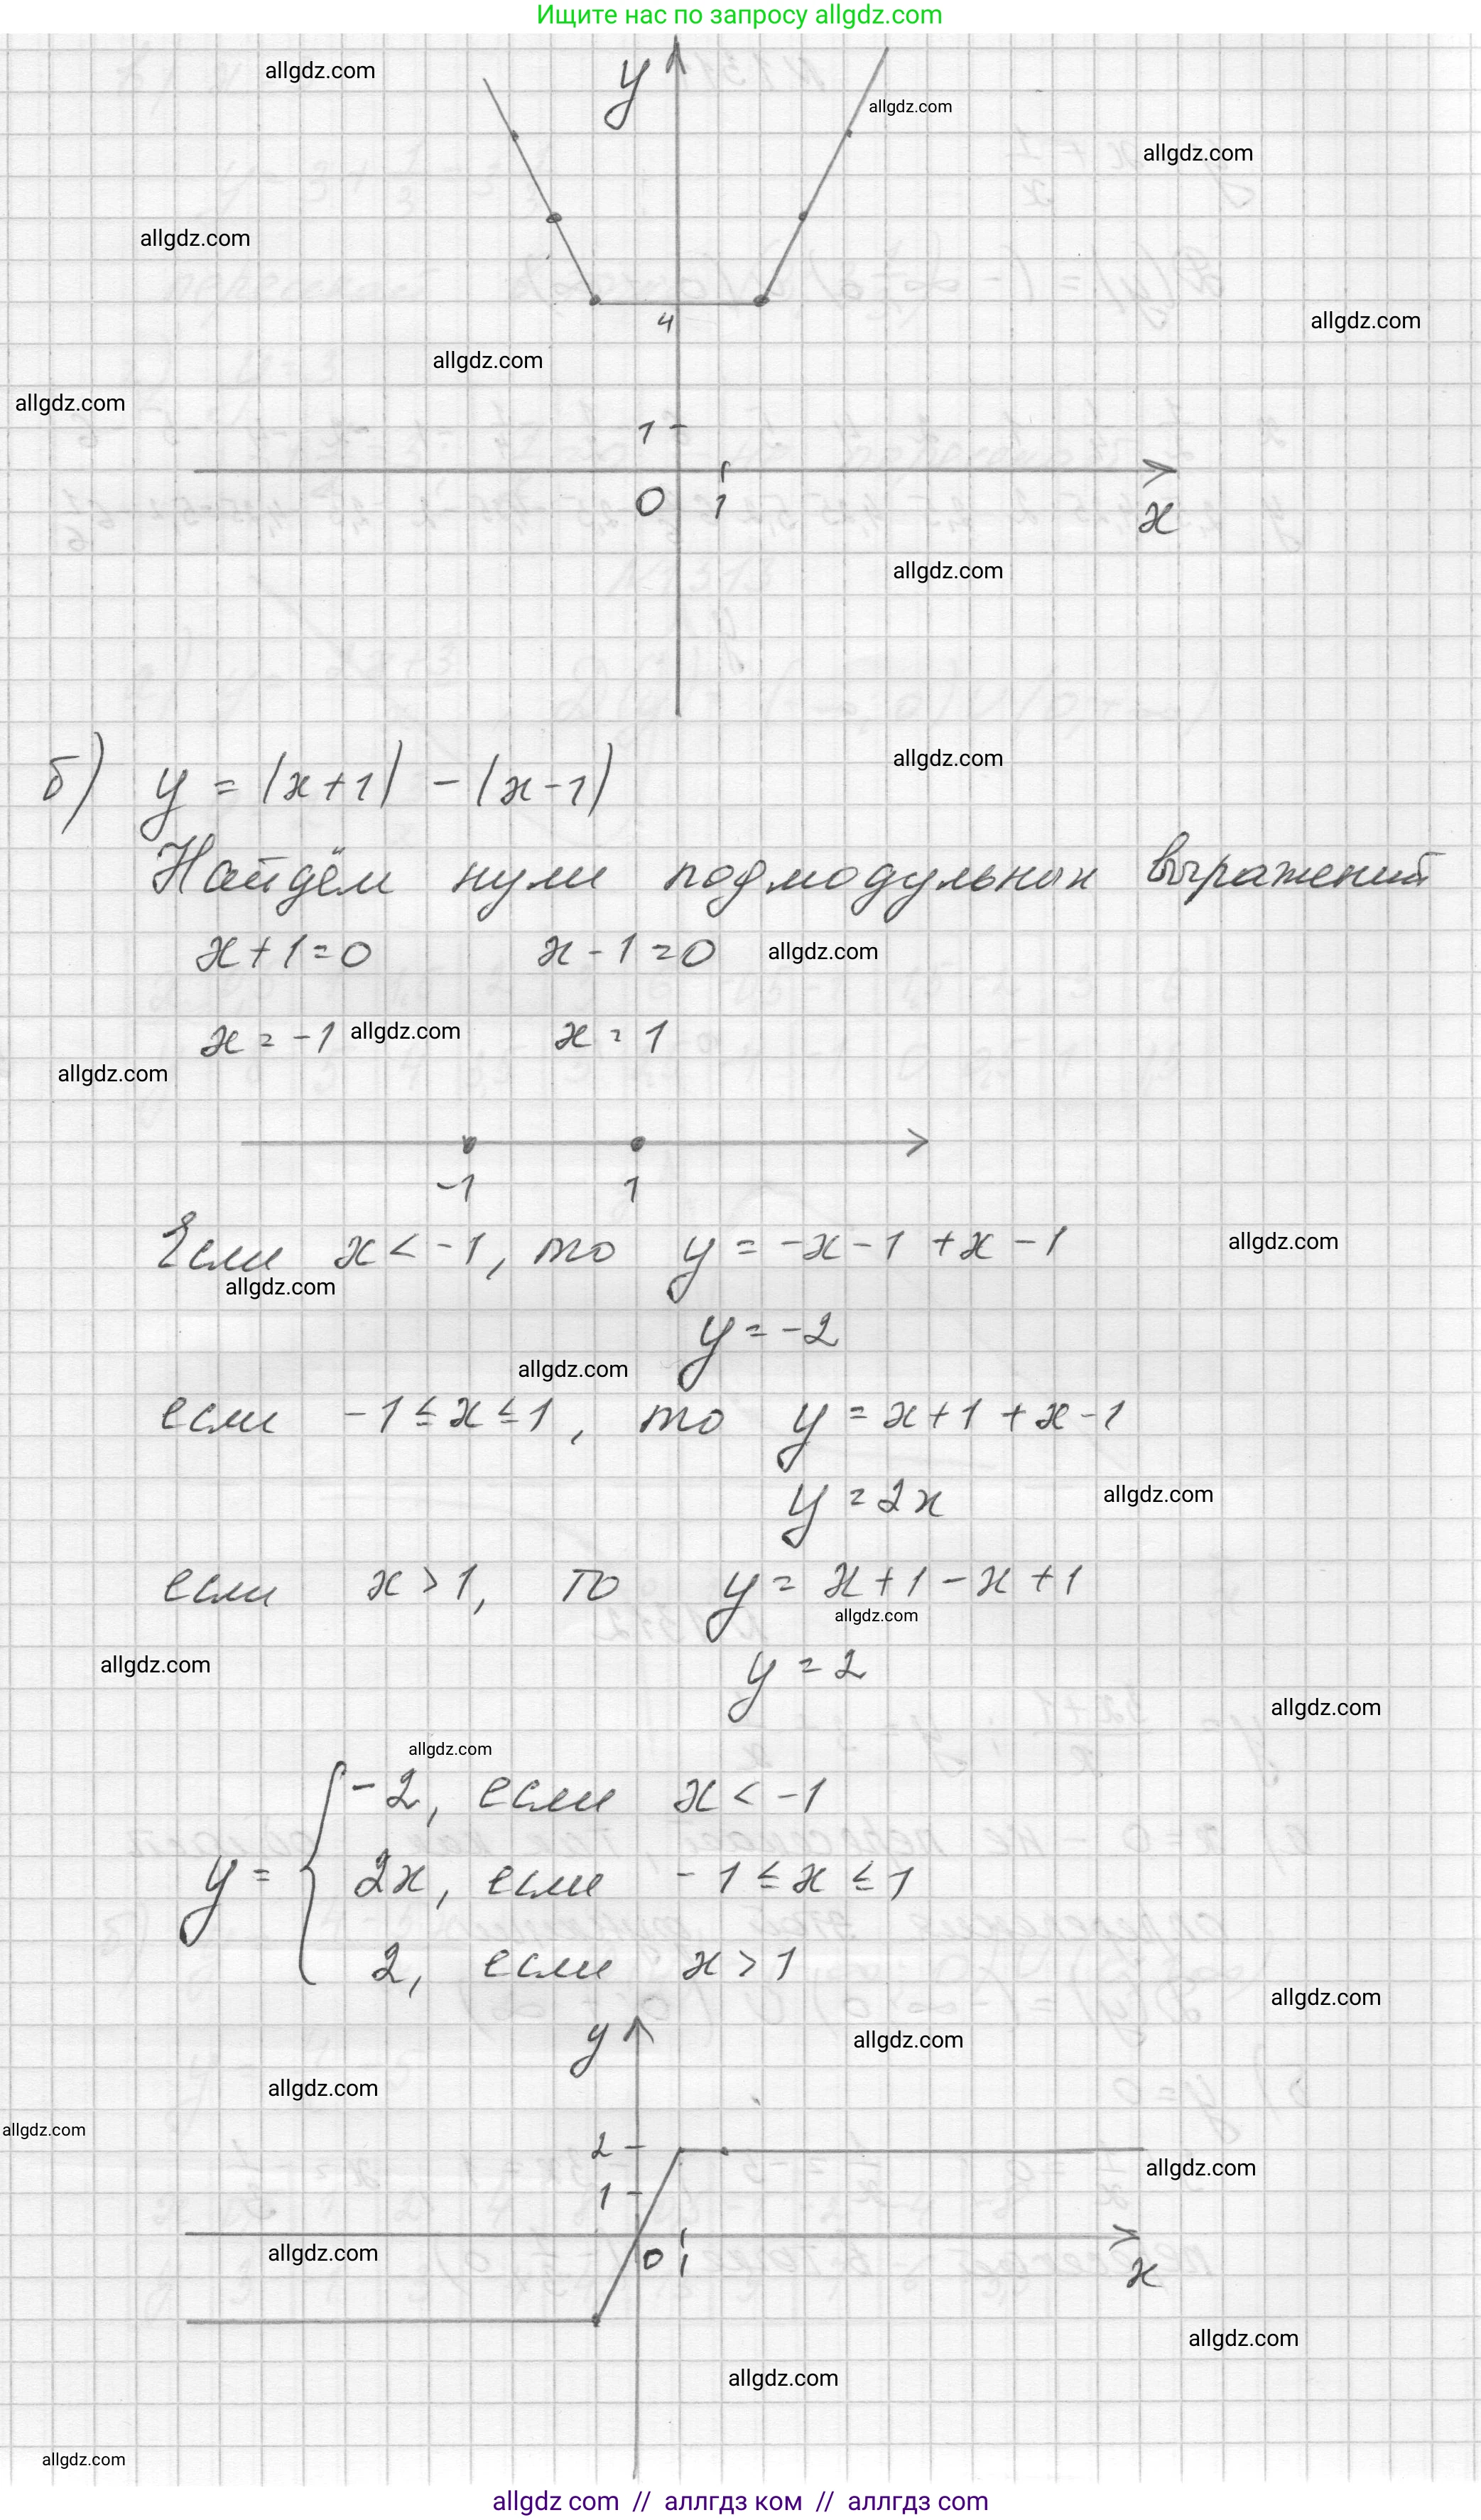 Ищите нас по запросу allgdz.com
allgdz.com
y
allgdz.com
allgdz.com
allgdz.com
4
allgdz.com
allgdz.com
allgdz.com
1
0 1
x
allgdz.com
allgdz.com
б) y = |x+1| - |x-1|
Найдём нули подмодульных выражений
x+1=0 x-1=0 allgdz.com
x = -1 allgdz.com x = 1
allgdz.com
-1 1
Если x < -1, то y = -x-1 +x -1 allgdz.com
allgdz.com
y = -2
allgdz.com
если -1 ≤ x ≤ 1, то y = x+1 +x-1
y = 2x allgdz.com
если x > 1, то y = x+1-x+1
allgdz.com
allgdz.com y = 2
allgdz.com
allgdz.com
-2, если x < -1
y = 2x, если -1 ≤ x ≤ 1
2, если x > 1
allgdz.com
y allgdz.com
allgdz.com
allgdz.com
2
allgdz.com
1
allgdz.com 0 1
x
allgdz.com
allgdz.com
allgdz.com
allgdz com // аллгдз ком // аллгдз com